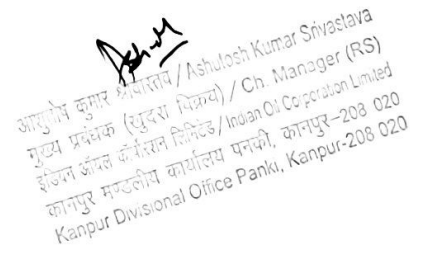 Ashish
आशुतोष कुमार श्रीवास्तव / Ashutosh Kumar Srivastava
मुख्य प्रबंधक (खुदरा विक्रय) / Ch. Manager (RS)
इंडियन ऑयल कॉर्पोरेशन लिमिटेड / Indian Oil Corporation Limited
कानपुर मण्डलीय कार्यालय पनकी, कानपुर-208 020
Kanpur Divisional Office Panki, Kanpur-208 020